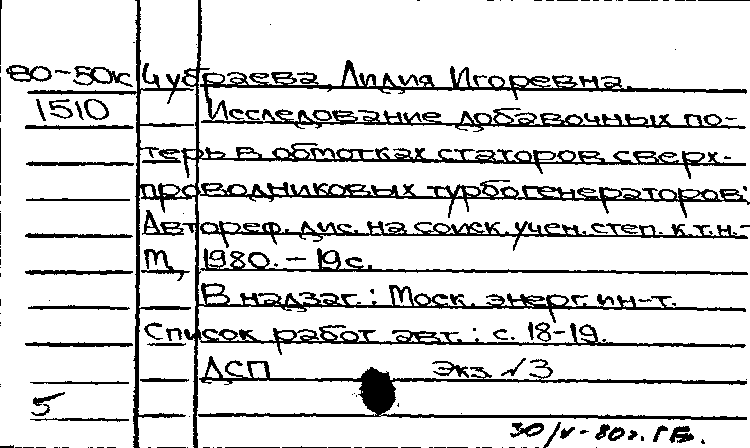 80-50к Чубраева, Лидия Игоревна.
1510 Исследование добавочных по-
терь в обмотках статоров сверх-
проводниковых турбогенераторов:
Автореф. дис. на соиск. учен. степ. к.т.н.-
М., 1980. - 19с.
В надзаг.: Моск. энерг. ин-т.
Список работ авт.: с. 18-19.
ДСП Экз √3
5
30/V-80г. ГБ.